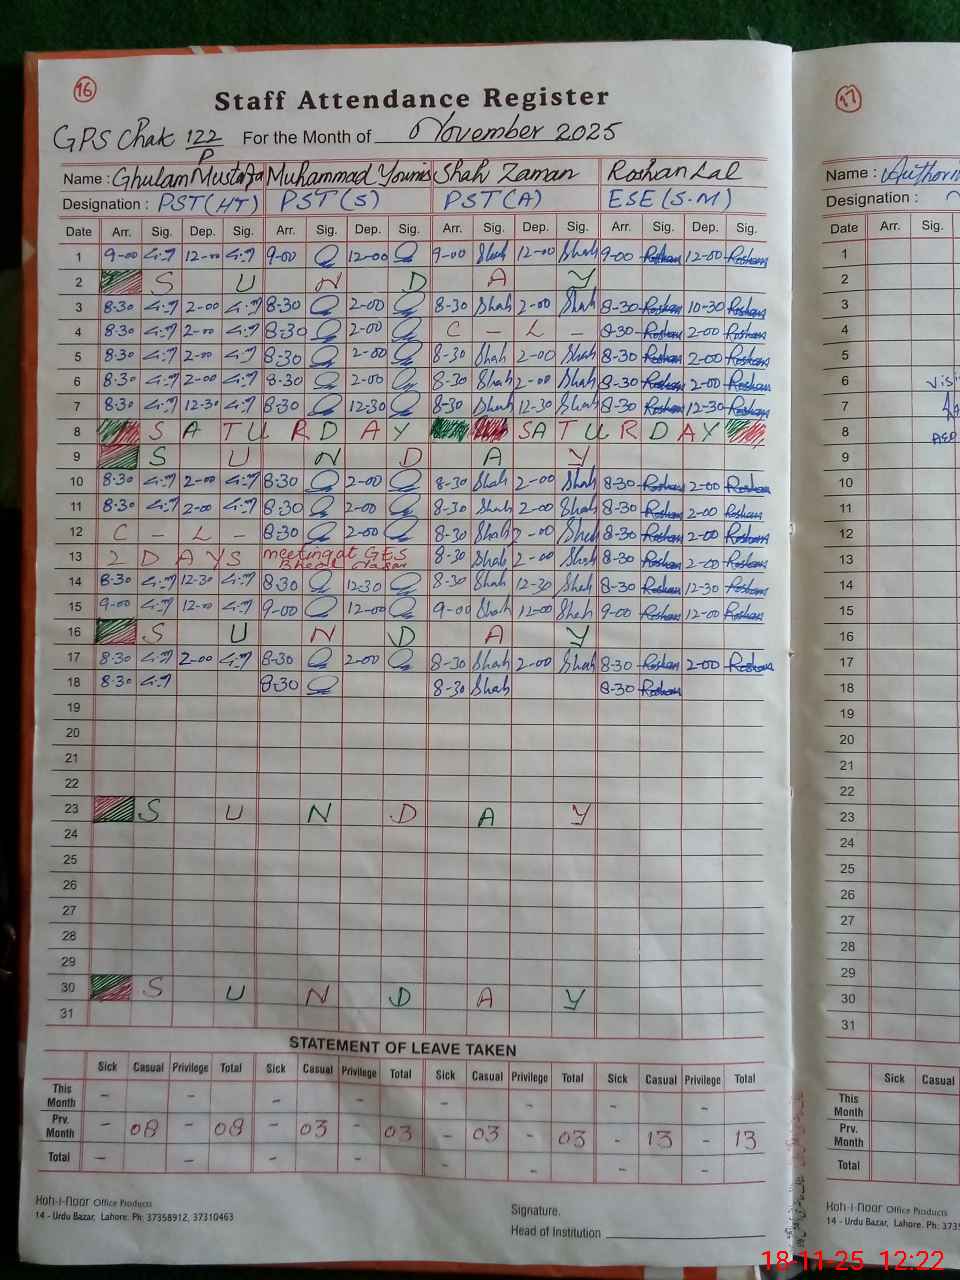 16
Staff Attendance Register
17
GPS Chak 122/P For the Month of November 2025
Name : Ghulam Mustafa Muhammad Younis Shah Zaman Roshan Lal
Name :
Designation : PST(HT) PST(S) PST(A) ESE(S.M)
Designation :
Date Arr. Sig. Dep. Sig. Arr. Sig. Dep. Sig. Arr. Sig. Dep. Sig. Arr. Sig. Dep. Sig.
Date Arr. Sig.
1 9-00 12-00 9-00 12-00 9-00 Shah 12-00 Shah 9-00 Roshan 12-00 Roshan
2 S U N D A Y
3 8-30 2-00 8-30 2-00 8-30 Shah 2-00 Shah 8-30 Roshan 10-30 Roshan
4 8-30 2-00 8-30 2-00 C - L - 8-30 Roshan 2-00 Roshan
5 8-30 2-00 8-30 2-00 8-30 Shah 2-00 Shah 8-30 Roshan 2-00 Roshan
6 8-30 2-00 8-30 2-00 8-30 Shah 2-00 Shah 8-30 Roshan 2-00 Roshan
7 8-30 12-30 8-30 12-30 8-30 Shah 12-30 Shah 8-30 Roshan 12-30 Roshan
8 S A T U R D A Y S A T U R D A Y
9 S U N D A Y
10 8-30 2-00 8-30 2-00 8-30 Shah 2-00 Shah 8-30 Roshan 2-00 Roshan
11 8-30 2-00 8-30 2-00 8-30 Shah 2-00 Shah 8-30 Roshan 2-00 Roshan
12 C - L - 8-30 2-00 8-30 Shah 2-00 Shah 8-30 Roshan 2-00 Roshan
13 2 D A Y S meeting at GES 8-30 Shah 2-00 Shah 8-30 Roshan 2-00 Roshan
14 8-30 12-30 8-30 12-30 8-30 Shah 12-30 Shah 8-30 Roshan 12-30 Roshan
15 9-00 12-00 9-00 12-00 9-00 Shah 12-00 Shah 9-00 Roshan 12-00 Roshan
16 S U N D A Y
17 8-30 2-00 8-30 2-00 8-30 Shah 2-00 Shah 8-30 Roshan 2-00 Roshan
18 8-30 8-30 8-30 Shah 8-30 Roshan
19
20
21
22
23 S U N D A Y
24
25
26
27
28
29
30 S U N D A Y
31
1
2
3
4
5
6
7
8
9
10
11
12
13
14
15
16
17
18
19
20
21
22
23
24
25
26
27
28
29
30
31
STATEMENT OF LEAVE TAKEN
Sick Casual Privilege Total Sick Casual Privilege Total Sick Casual Privilege Total Sick Casual Privilege Total
This Month - - - - - - - -
Prv. Month - 08 - 08 - 03 - 03 - 03 - 03 - 13 - 13
Total - - - - - - - -
Sick Casual
This Month
Prv. Month
Total
Koh-i-Noor Office Products
14 - Urdu Bazar, Lahore. Ph: 37358912, 37310463
Signature.
Head of Institution
Koh-i-Noor Office Products
14 - Urdu Bazar, Lahore. Ph: 373
18-11-25 12:22